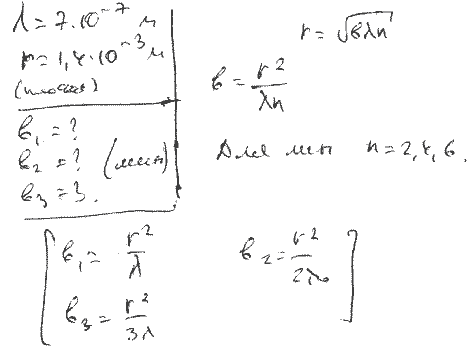 λ = 7·10⁻⁷ м
r = 1,4·10⁻³ м
b₁ = ?
b₂ = ? (мин)
b₃ = ?.
r = √bλn
b = r²/λn
Для мин n = 2, 4, 6.
b₁ = r²/λ b₂ = r²/2λ
b₃ = r²/3λ